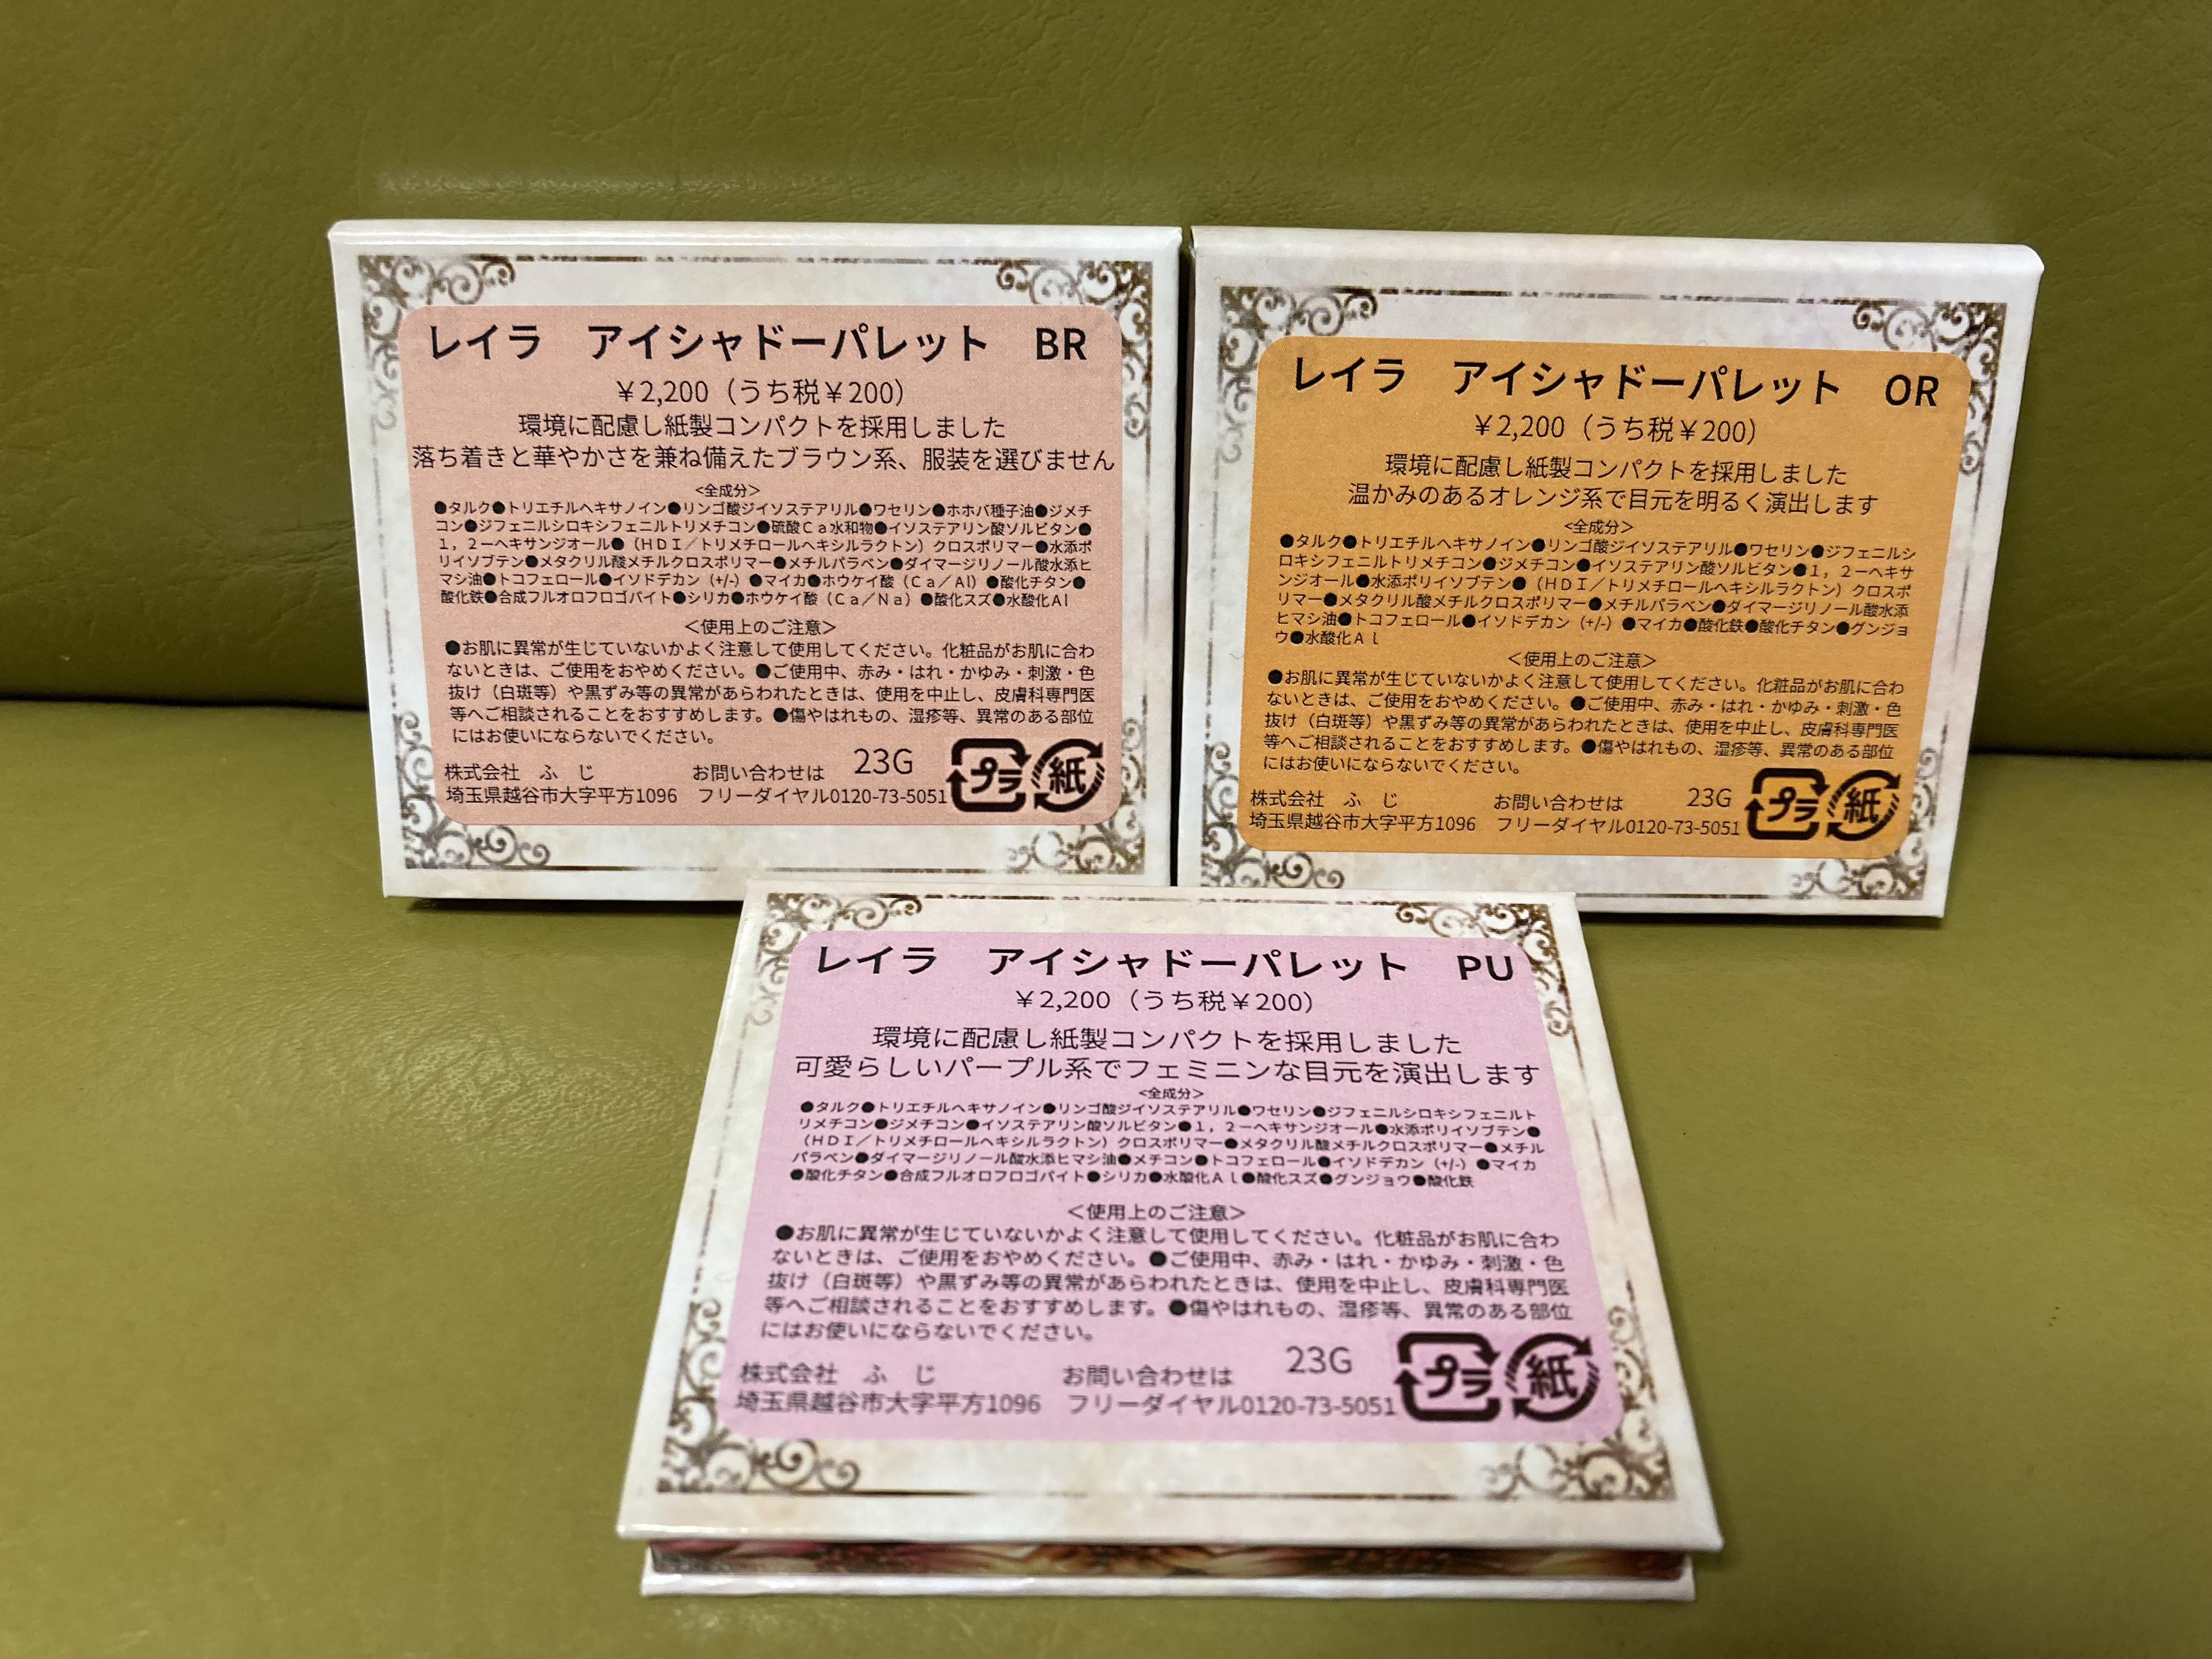 レイラ　アイシャドーパレット　BR
￥2,200（うち税￥200）
環境に配慮し紙製コンパクトを採用しました
落ち着きと華やかさを兼ね備えたブラウン系、服装を選びません
<全成分>
●タルク●トリエチルヘキサノイン●リンゴ酸ジイソステアリル●ワセリン●ホホバ種子油●ジメチ
コン●ジフェニルシロキシフェニルトリメチコン●硫酸Ｃａ水和物●イソステアリン酸ソルビタン●
１，２－ヘキサンジオール●（ＨＤＩ／トリメチロールヘキシルラクトン）クロスポリマー●水添ポ
リイソブテン●メタクリル酸メチルクロスポリマー●メチルパラベン●ダイマージリノール酸水添ヒ
マシ油●トコフェロール●イソドデカン（+/-）●マイカ●ホウケイ酸（Ｃａ／Al）●酸化チタン●
酸化鉄●合成フルオロフロゴパイト●シリカ●ホウケイ酸（Ｃａ／Ｎａ）●酸化スズ●水酸化Ａl
＜使用上のご注意＞
●お肌に異常が生じていないかよく注意して使用してください。化粧品がお肌に合わ
ないときは、ご使用をおやめください。●ご使用中、赤み・はれ・かゆみ・刺激・色
抜け（白斑等）や黒ずみ等の異常があらわれたときは、使用を中止し、皮膚科専門医
等へご相談されることをおすすめします。●傷やはれもの、湿疹等、異常のある部位
にはお使いにならないでください。
株式会社　ふ　じ　お問い合わせは　23G
埼玉県越谷市大字平方1096　フリーダイヤル0120-73-5051
プラ 紙
レイラ　アイシャドーパレット　OR
￥2,200（うち税￥200）
環境に配慮し紙製コンパクトを採用しました
温かみのあるオレンジ系で目元を明るく演出します
<全成分>
●タルク●トリエチルヘキサノイン●リンゴ酸ジイソステアリル●ワセリン●ジフェニルシ
ロキシフェニルトリメチコン●ジメチコン●イソステアリン酸ソルビタン●１，２－ヘキサ
ンジオール●水添ポリイソブテン●（ＨＤＩ／トリメチロールヘキシルラクトン）クロスポ
リマー●メタクリル酸メチルクロスポリマー●メチルパラベン●ダイマージリノール酸水添
ヒマシ油●トコフェロール●イソドデカン（+/-）●マイカ●酸化鉄●酸化チタン●グンジョ
ウ●水酸化Ａｌ
＜使用上のご注意＞
●お肌に異常が生じていないかよく注意して使用してください。化粧品がお肌に合わ
ないときは、ご使用をおやめください。●ご使用中、赤み・はれ・かゆみ・刺激・色
抜け（白斑等）や黒ずみ等の異常があらわれたときは、使用を中止し、皮膚科専門医
等へご相談されることをおすすめします。●傷やはれもの、湿疹等、異常のある部位
にはお使いにならないでください。
株式会社　ふ　じ　お問い合わせは　23G
埼玉県越谷市大字平方1096　フリーダイヤル0120-73-5051
プラ 紙
レイラ　アイシャドーパレット　PU
￥2,200（うち税￥200）
環境に配慮し紙製コンパクトを採用しました
可愛らしいパープル系でフェミニンな目元を演出します
<全成分>
●タルク●トリエチルヘキサノイン●リンゴ酸ジイソステアリル●ワセリン●ジフェニルシロキシフェニルト
リメチコン●ジメチコン●イソステアリン酸ソルビタン●１，２－ヘキサンジオール●水添ポリイソブテン●
（ＨＤＩ／トリメチロールヘキシルラクトン）クロスポリマー●メタクリル酸メチルクロスポリマー●メチル
パラベン●ダイマージリノール酸水添ヒマシ油●メチコン●トコフェロール●イソドデカン（+/-）●マイカ
●酸化チタン●合成フルオロフロゴパイト●シリカ●水酸化Ａｌ●酸化スズ●グンジョウ●酸化鉄
＜使用上のご注意＞
●お肌に異常が生じていないかよく注意して使用してください。化粧品がお肌に合わ
ないときは、ご使用をおやめください。●ご使用中、赤み・はれ・かゆみ・刺激・色
抜け（白斑等）や黒ずみ等の異常があらわれたときは、使用を中止し、皮膚科専門医
等へご相談されることをおすすめします。●傷やはれもの、湿疹等、異常のある部位
にはお使いにならないでください。
株式会社　ふ　じ　お問い合わせは　23G
埼玉県越谷市大字平方1096　フリーダイヤル0120-73-5051
プラ 紙